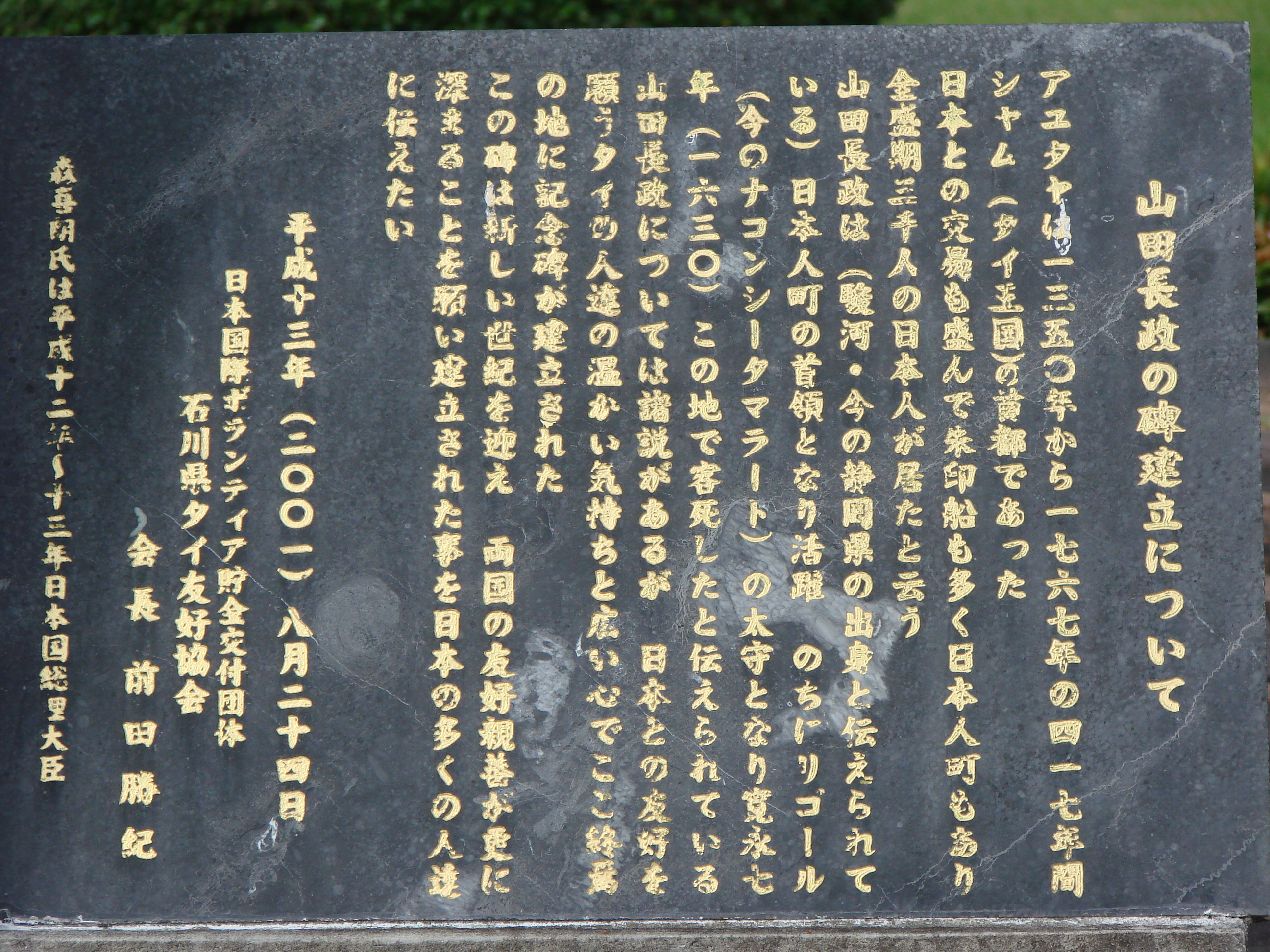 山田長政の碑建立について
アユタヤは一三五〇年から一七六七年の四一七年間
シャム（タイ王国）の首都であった
日本との交易も盛んで朱印船も多く日本人町もあり
全盛期三千人の日本人が居たと云う
山田長政は（駿河・今の静岡県の出身と伝えられて
いる）日本人町の首領となり活躍　のちにリゴール
（今のナコンシータマラート）の太守となり寛永七
年（一六三〇）この地で客死したと伝えられている
山田長政については諸説があるが　日本との友好を
願うタイの人達の温かい気持ちと広い心でここ終焉
の地に記念碑が建立された
この碑は新しい世紀を迎え　両国の友好親善が更に
深まることを願い建立された事を日本の多くの人達
に伝えたい
平成十三年（二〇〇一）八月二十四日
日本国際ボランティア貯金交付団体
石川県タイ友好協会
会長　前田勝紀
森喜朗氏は平成十二年～十三年日本国総理大臣